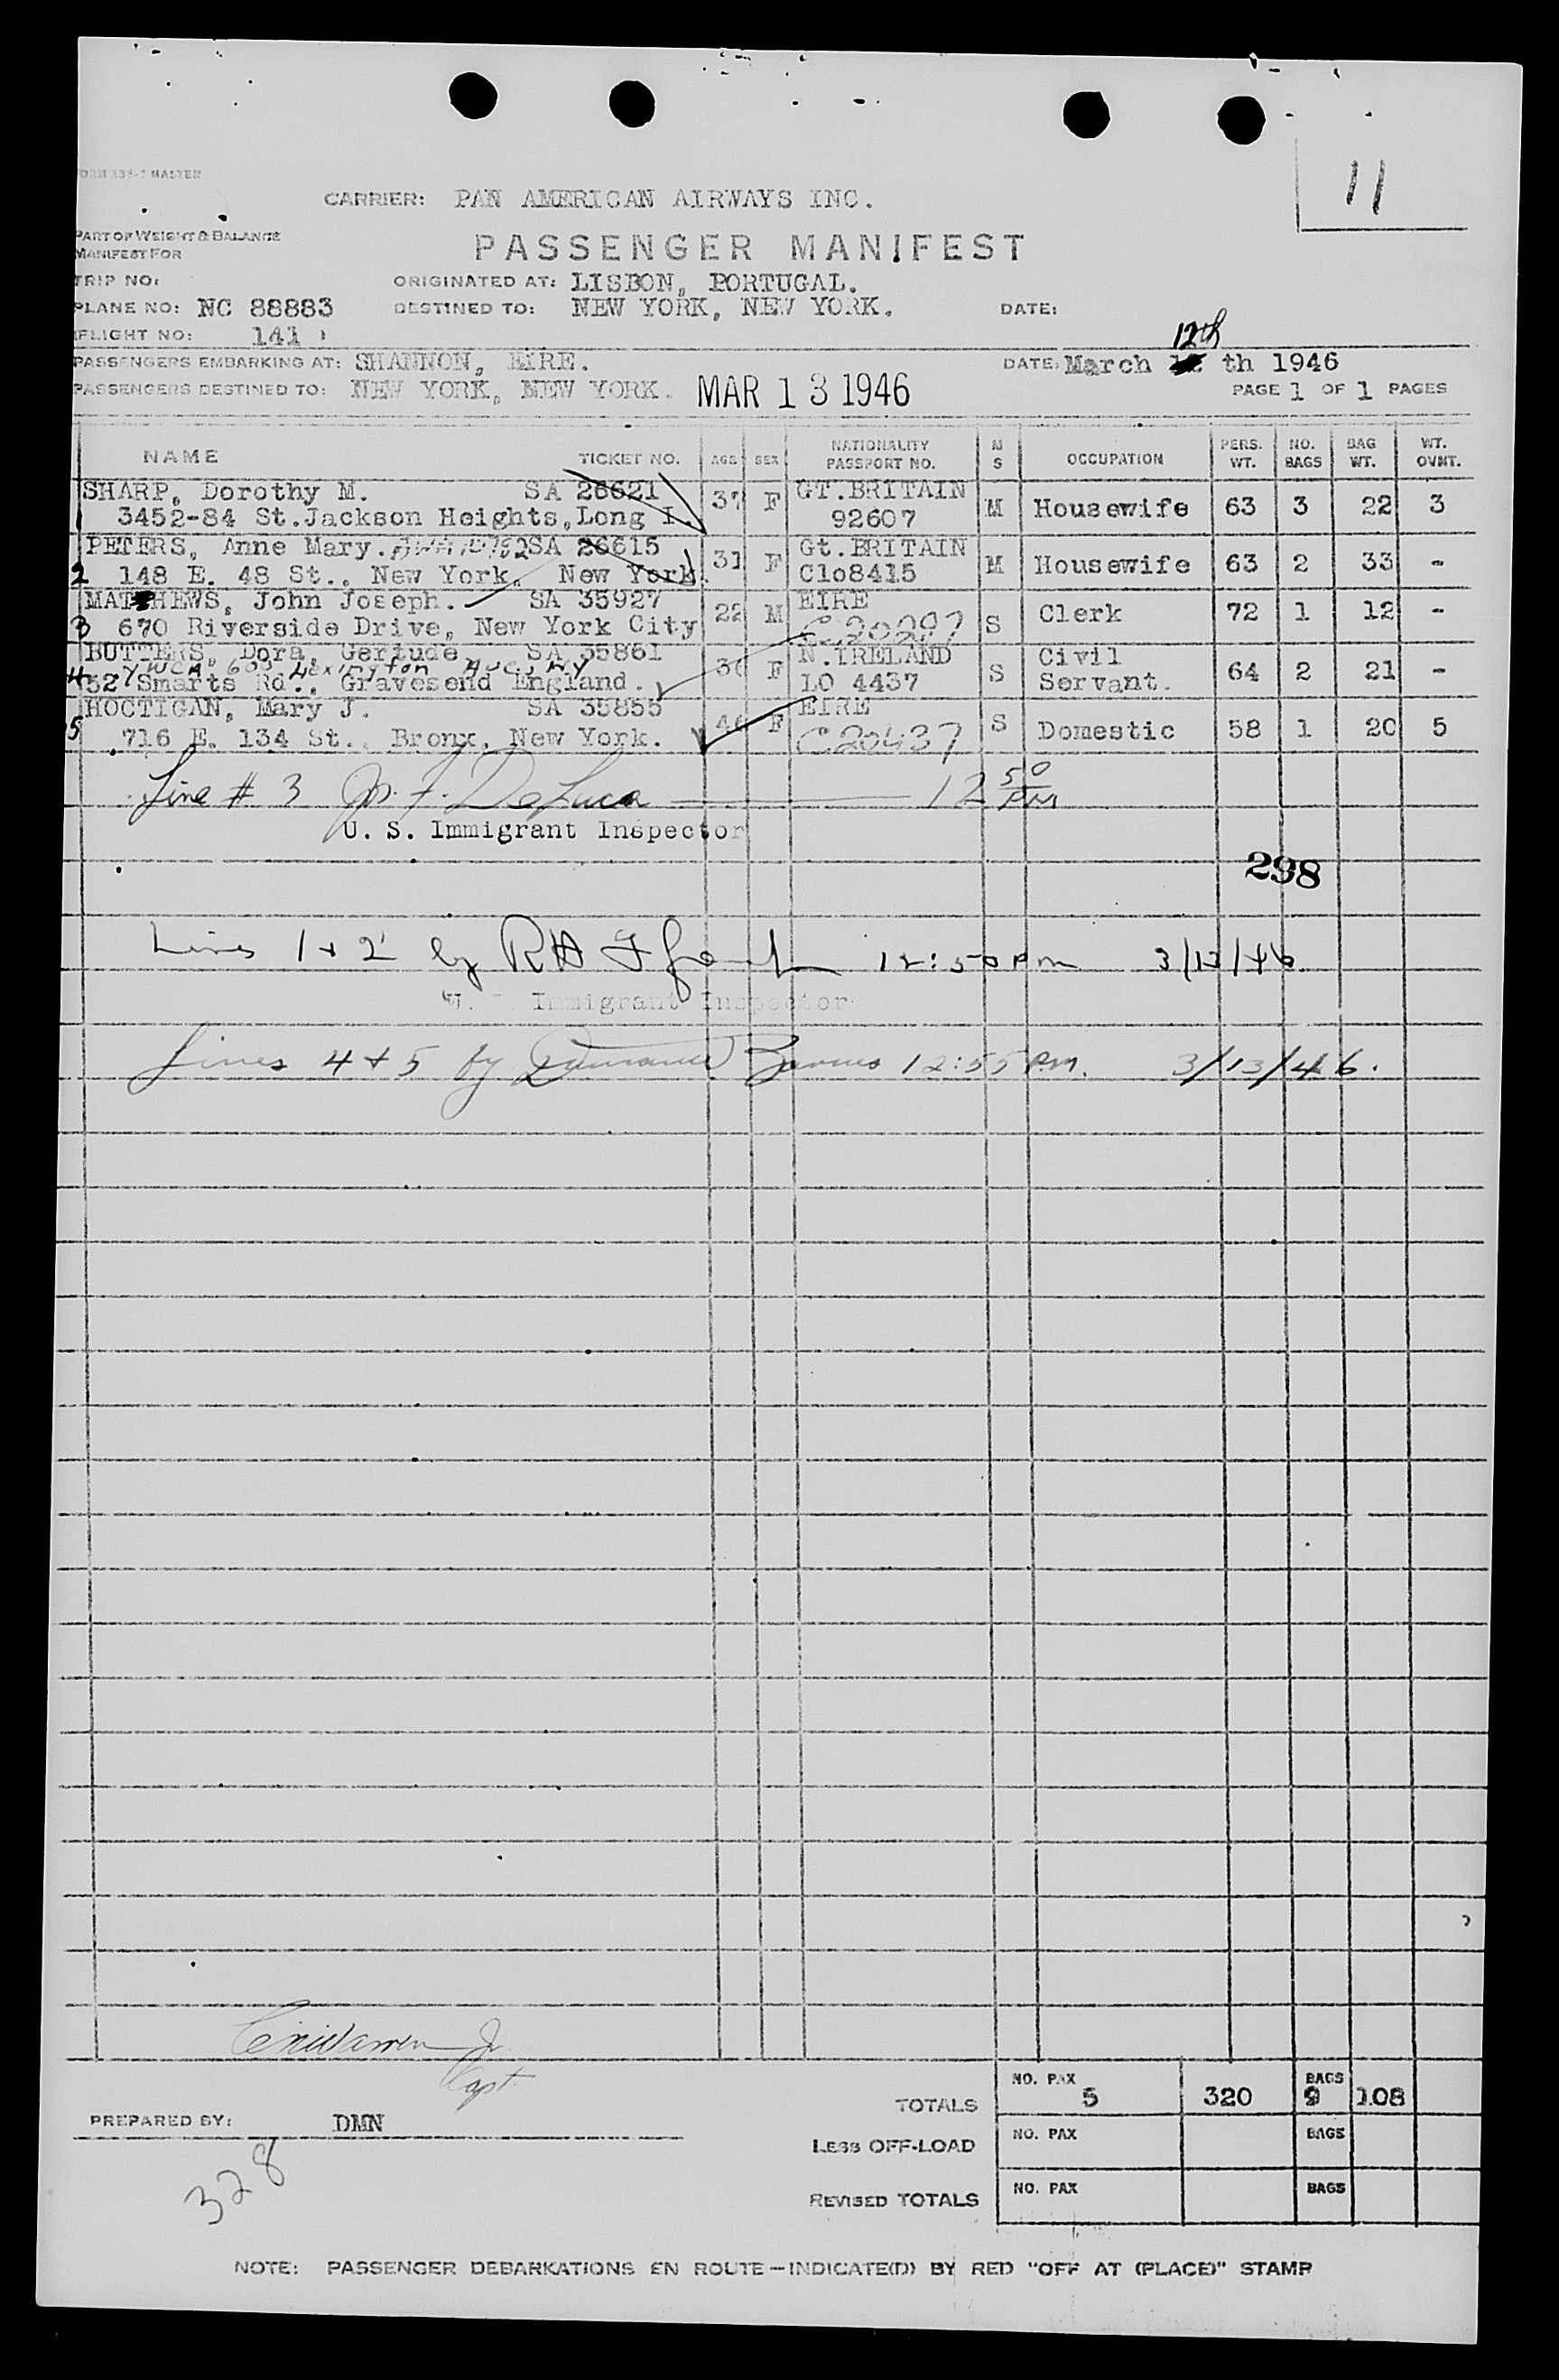 FORM 335-1 MASTER
11
CARRIER: PAN AMERICAN AIRWAYS INC.
PART OF WEIGHT & BALANCE
MANIFEST FOR
PASSENGER MANIFEST
TRIP NO:
ORIGINATED AT: LISBON, PORTUGAL.
PLANE NO: NC 88883
DESTINED TO: NEW YORK, NEW YORK.
DATE:
FLIGHT NO: 141
12th
PASSENGERS EMBARKING AT: SHANNON, EIRE.
DATE: March th 1946
PASSENGERS DESTINED TO: NEW YORK, NEW YORK.
MAR 13 1946
PAGE 1 OF 1 PAGES
NAME TICKET NO. AGE SEX NATIONALITY PASSPORT NO. M S OCCUPATION PERS. WT. NO. BAGS BAG WT. WT. OVWT.
SHARP, Dorothy M. SA 26621 37 F GT.BRITAIN
1 3452-84 St.Jackson Heights, Long I. 92607 M Housewife 63 3 22 3
PETERS, Anne Mary. SA 26615 31 F Gt.BRITAIN
2 148 E. 48 St., New York, New York. Clo8415 M Housewife 63 2 33 -
MATTHEWS, John Joseph. SA 35927 22 M EIRE
3 670 Riverside Drive, New York City C20297 S Clerk 72 1 12 -
BUTTERS, Dora, Gertude, SA 35861 30 F N.IRELAND Civil
YWCA 603 Lexington Ave., NY
4 52 Smarts Rd., Gravesend England. LO 4437 S Servant. 64 2 21 -
HOCTIGAN, Mary J. SA 35855 46 F EIRE
5 716 E. 134 St., Bronx, New York. C20437 S Domestic 58 1 20 5
Line # 3 Jos. F. DeLuca 12 50 PM
U. S. Immigrant Inspector
298
Lines 1 + 2 by 12:50 pm 3/13/46
U. S. Immigrant Inspector
Lines 4 + 5 by 12:55 P.M. 3/13/46.
Capt.
TOTALS NO. PAX 5 320 BAGS 9 108
PREPARED BY: DMN
LESS OFF-LOAD NO. PAX BAGS
328
REVISED TOTALS NO. PAX BAGS
NOTE: PASSENGER DEBARKATIONS EN ROUTE—INDICATE(D) BY RED "OFF AT (PLACE)" STAMP